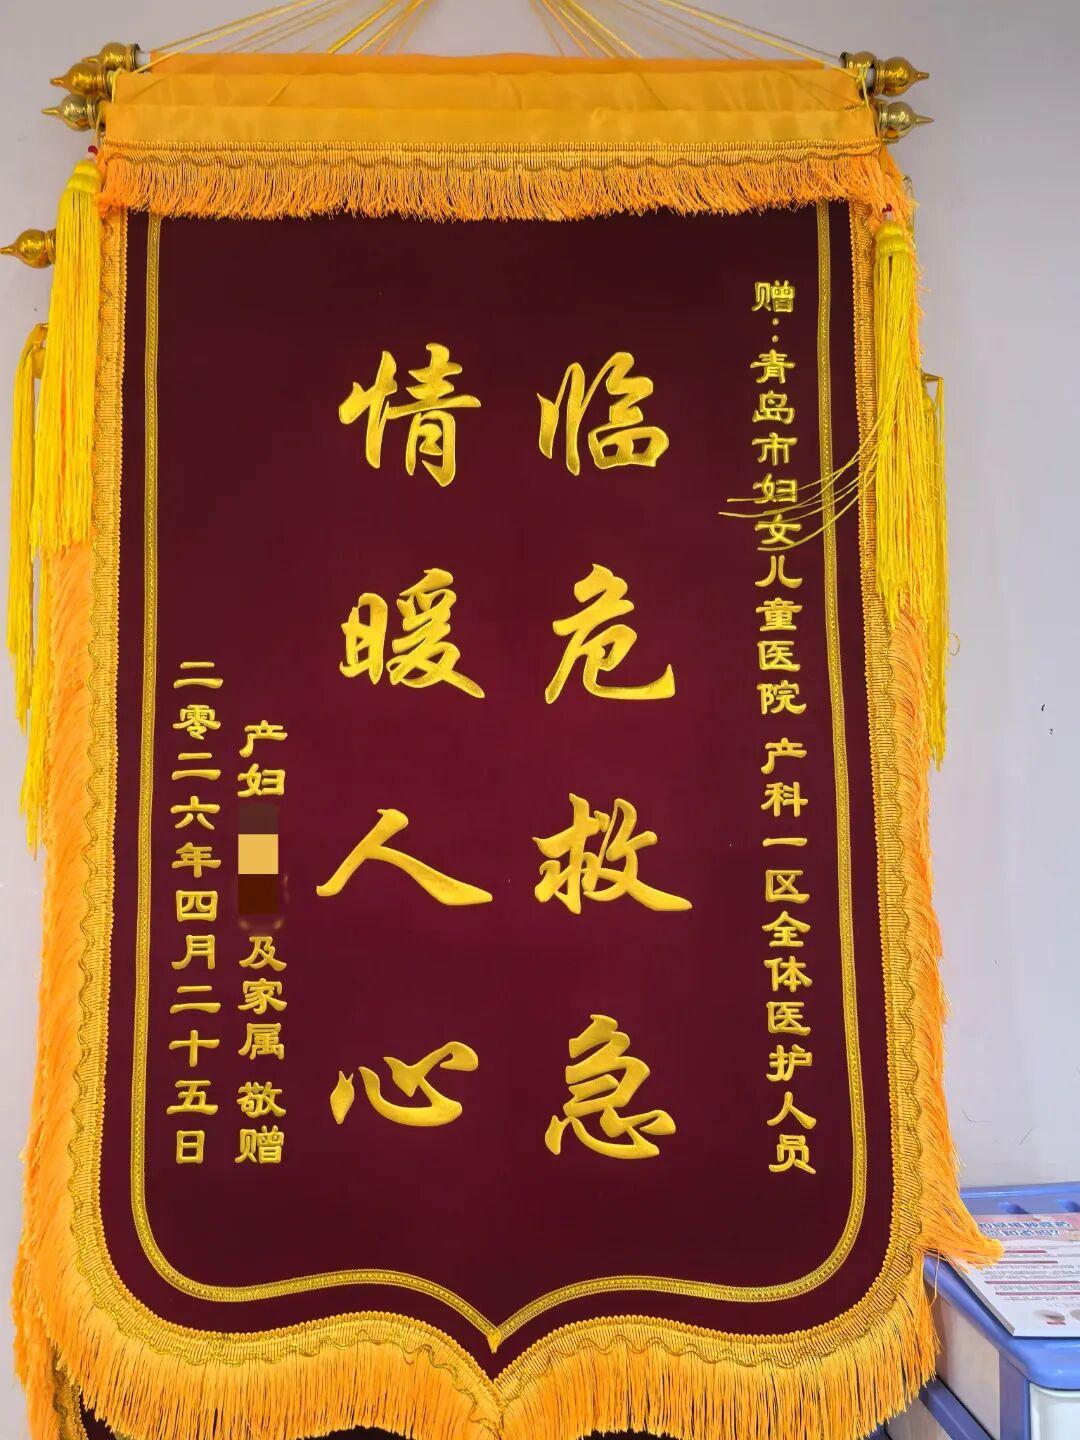 赠：青岛市妇女儿童医院 产科一区全体医护人员
临危救急
情暖人心
产妇 及家属 敬赠
二零二六年四月二十五日